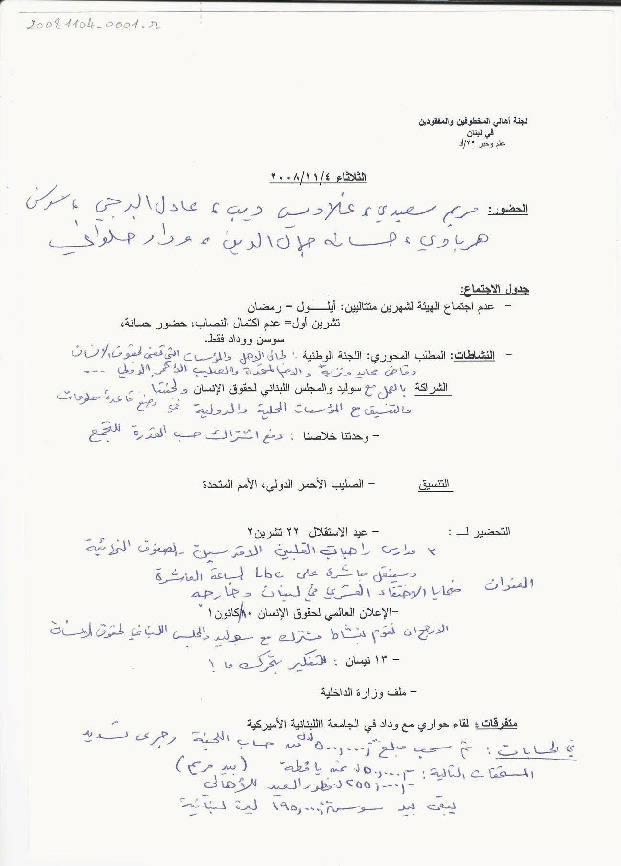 20081104-0001.a
لجنة أهالي المخطوفين والمفقودين
في لبنان
علم وخبر ٢٩/أد
الثلاثاء ٢٠٠٨/١١/٤
الحضور: مريم سعيدي، غلاديس ديب، عادل البرجي، سوسن
هرباوي، حسانه جمال الدين، وداد حلواني
جدول الاجتماع:
- عدم اجتماع الهيئة لشهرين متتاليين: أيلـــول - رمضان
تشرين أول= عدم اكتمال النصاب، حضور حسانة،
سوسن ووداد فقط.
- النشاطات: المطلب المحوري: اللجنة الوطنية : لجان الأهل والمؤسسات التي تعنى لحقوق الإنسان
والأمم المتحدة والصليب الأحمر الدولي ---
الشراكة بالعمل مع سوليد والمجلس اللبناني لحقوق الإنسان ولجنتنا
والتنسيق مع المؤسسات المحلية والدولية في وضع قاعدة معلومات
- وحدتنا خلاصنا : دفع اشتراك حسب القدرة للتجمع
التنسيق - الصليب الأحمر الدولي، الأمم المتحدة
التحضير لـ : - عيد الاستقلال ٢٢ تشرين٢
٣ مدارس راهبات القلبين الأقدسين - الصفوف النهائية
وسينقل مباشرة على Lbc الساعة العاشرة
العنوان ضحايا الاختفاء القسري في لبنان وخارجه
-الإعلان العالمي لحقوق الإنسان ١٠/كانون١
الارجح ان نقوم بنشاط مشترك مع سوليد والمجلس اللبناني لحقوق الإنسان
- ١٣ نيسان : للتفكير بتحرك ما !
- ملف وزارة الداخلية
متفرقات: لقاء حواري مع وداد في الجامعة االلبنانية الأميركية
في الحسابات : تم سحب مبلغ ٥٠٠,٠٠٠ ل.ل من حساب اللجنة وجرى تسديد
المستحقات التالية : ٥٠,٠٠٠ ل عن يافطة (بيد مريم)
٢٥٥,٠٠٠ ل فطور العيد للأهالي
يبقى بيد سوسن ١٩٥,٠٠٠ ليرة لبنانية